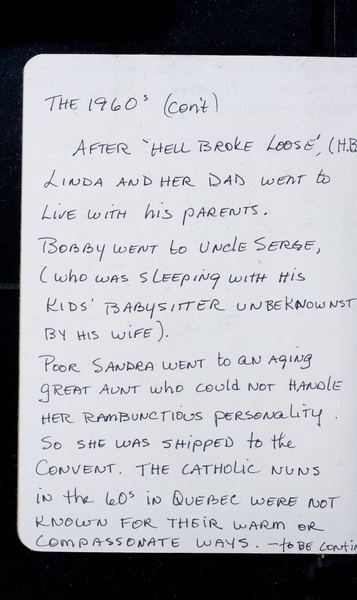 THE 1960s (con't)
AFTER 'HELL BROKE LOOSE', (H.B
LINDA AND HER DAD WENT to
LIVE WITH his PARENTS.
BOBBY WENT to UNCLE SERGE,
(WHO WAS SLEEPING WITH HIS
KIDS' BABYSITTER UNBEKNOWNST
BY HIS WIFE).
POOR SANDRA WENT to AN AGING
GREAT AUNT WHO COULD NOT HANDLE
HER RAMBUNCTIOUS PERSONALITY.
SO SHE WAS SHIPPED to the
CONVENT. THE CATHOLIC NUNS
in the 60s in QUEBEC WERE NOT
KNOWN FOR THEIR WARM OR
COMPASSONATE WAYS. -to BE CONTIN